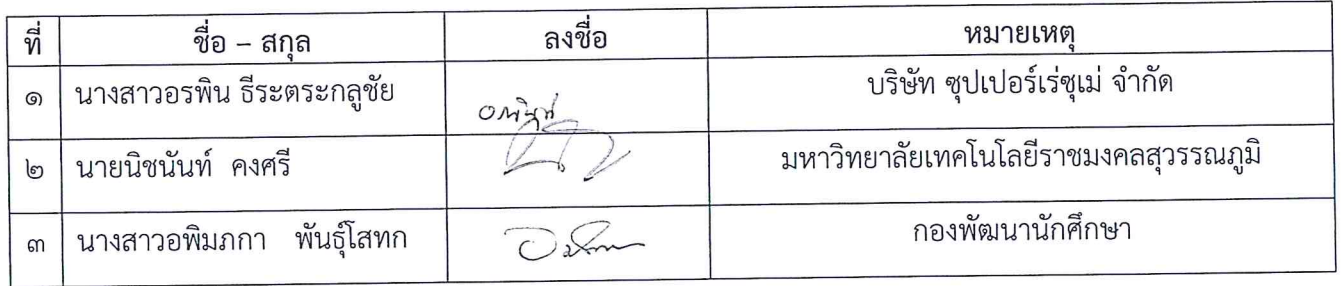 ที่ ชื่อ – สกุล ลงชื่อ หมายเหตุ
๑ นางสาวอรพิน ธีระตระกลูชัย บริษัท ซุปเปอร์เร่ซุเม่ จำกัด
๒ นายนิชนันท์ คงศรี มหาวิทยาลัยเทคโนโลยีราชมงคลสุวรรณภูมิ
๓ นางสาวอพิมภกา พันธุ์โสทก กองพัฒนานักศึกษา